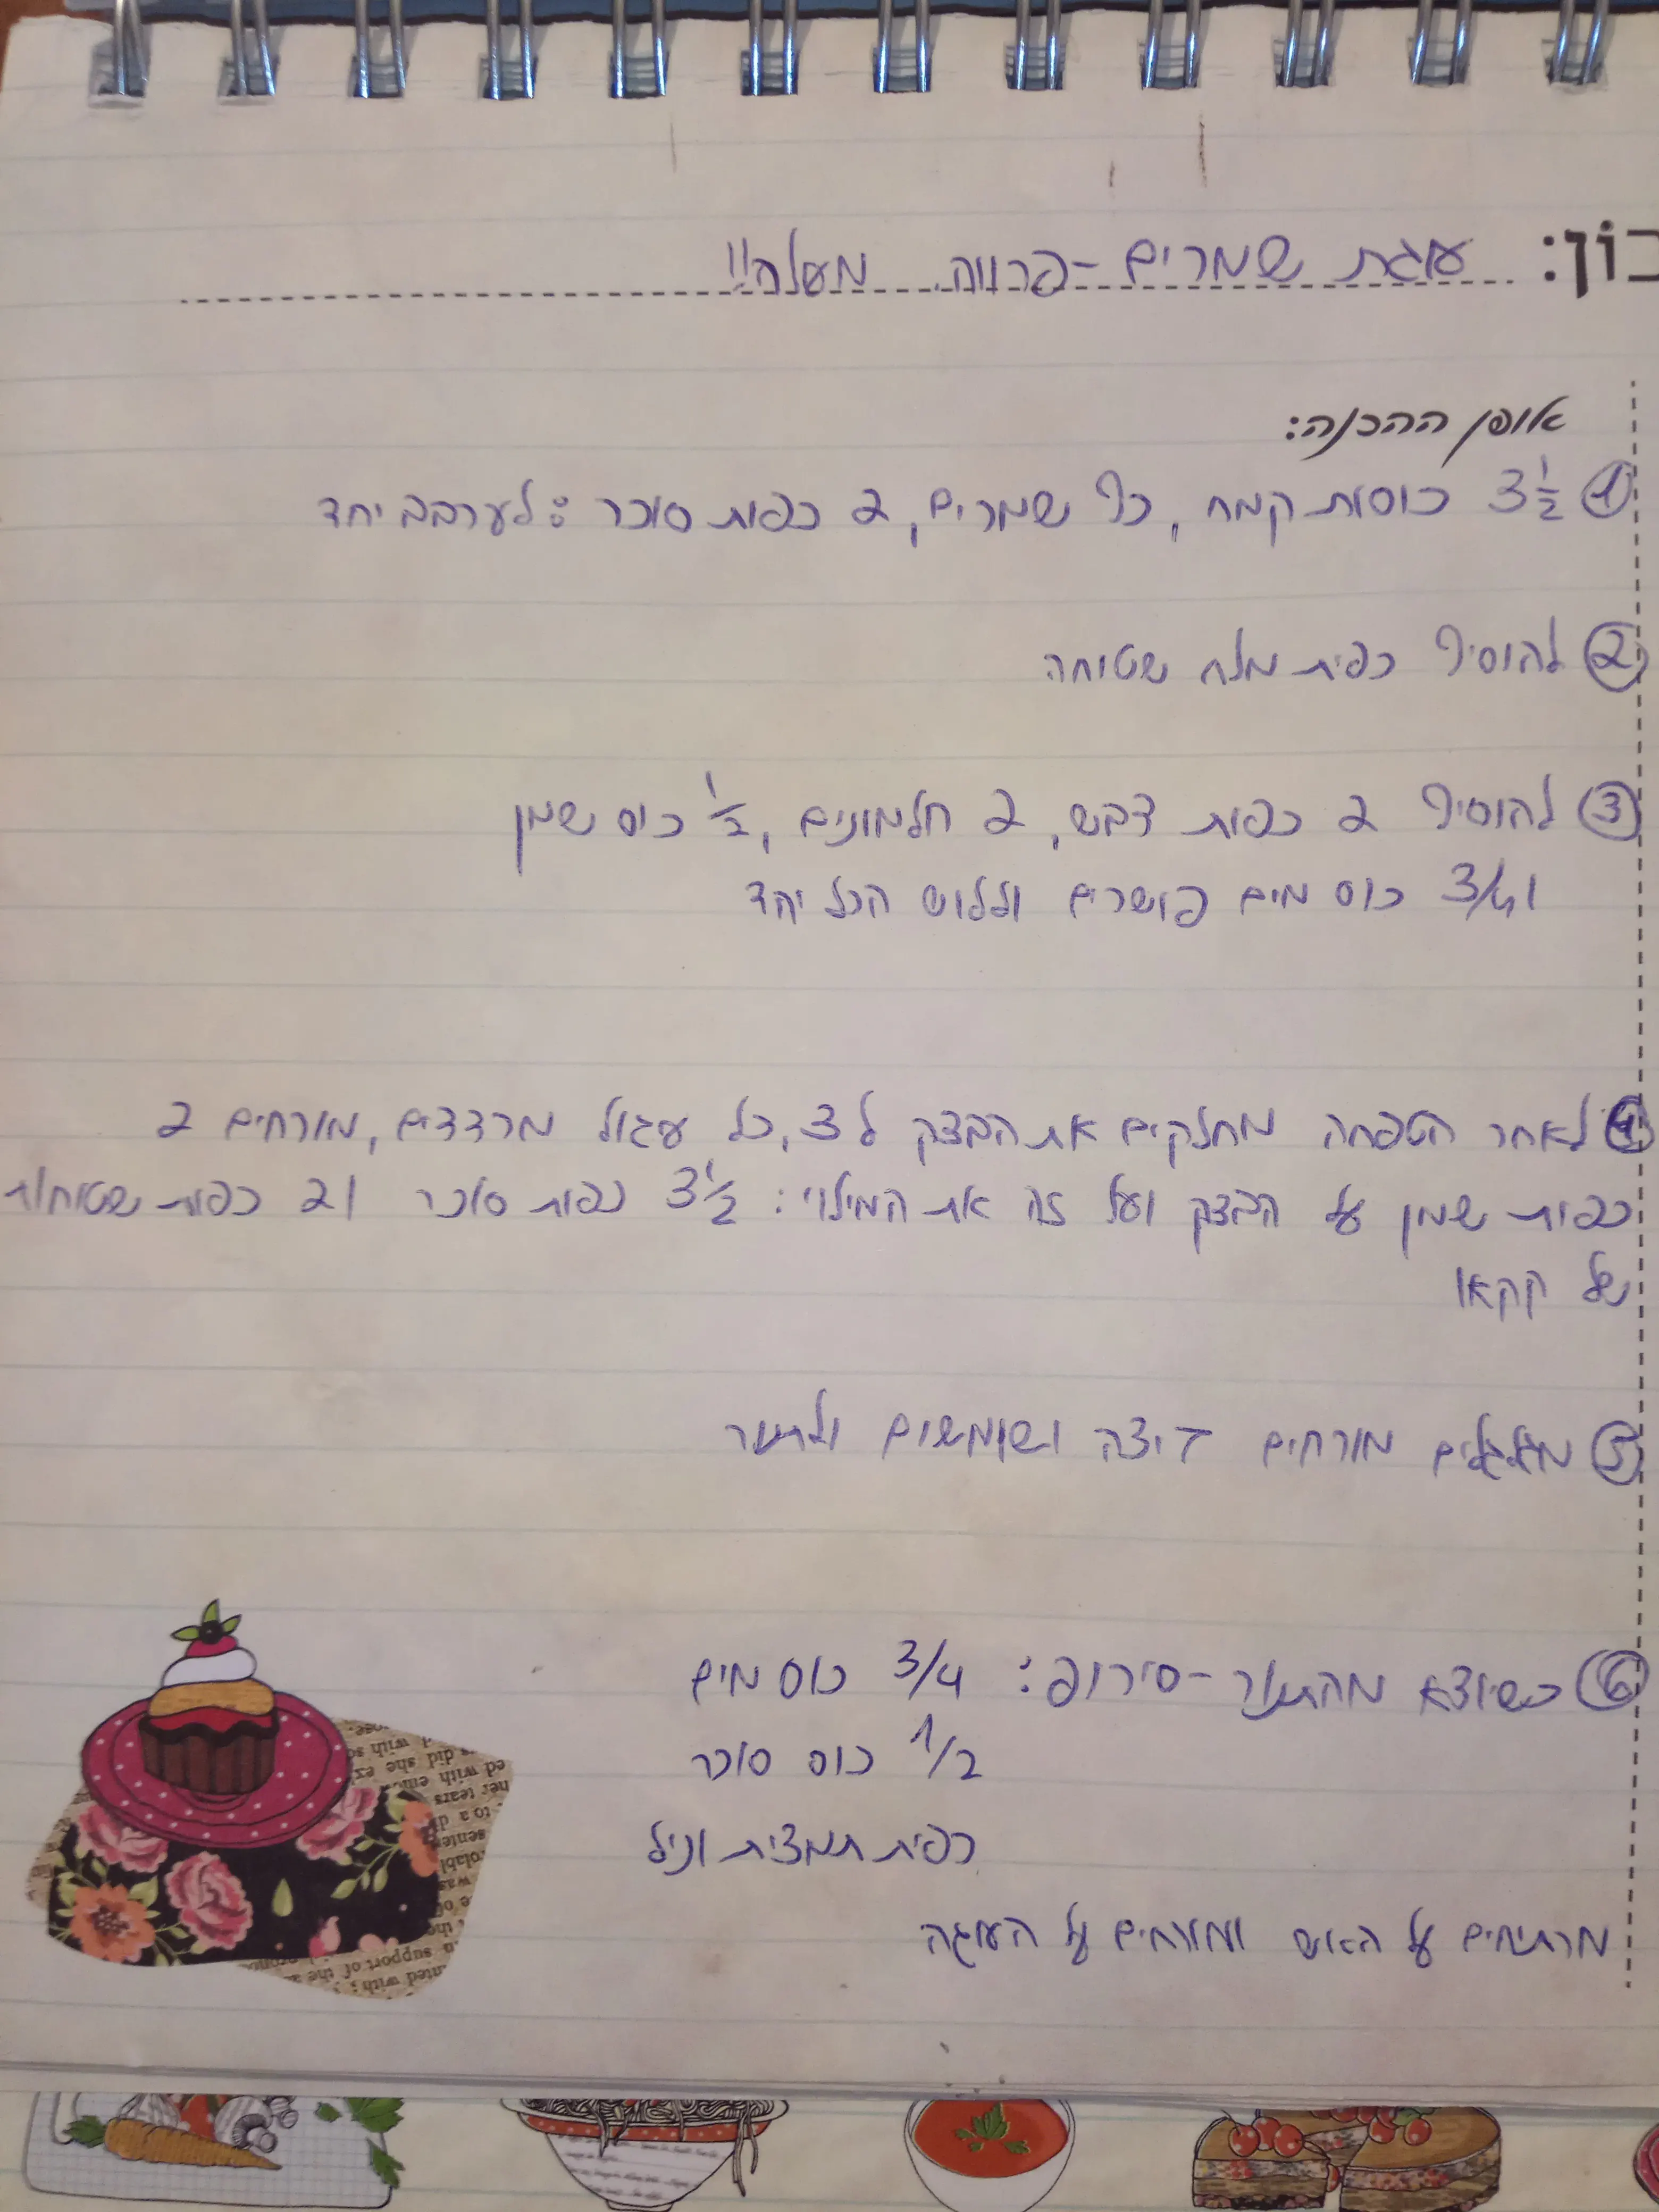 כון: עוגת שמרים - פרווה מעלה!!
אופן ההכנה:
① 3 1/2 כוסות קמח, כף שמרים, 2 כפות סוכר: לערבב יחד
② להוסיף כפית מלח שטוחה
③ להוסיף 2 כפות דבש, 2 חלמונים, 1/2 כוס שמן
ו 3/4 כוס מים פושרים וללוש הכל יחד
④ לאחר הטפחה מחלקים את הבצק ל 3, כל עגול מרדדים, מורחים 2
כפות שמן על הבצק ועל זה את המילוי: 3 1/2 כפות סוכר ו 2 כפות שטוחות
של קקאו
⑤ מגלגלים מורחים ביצה ושומשום ולתנור
⑥ כשיוצא מהתנור - סירופ: 3/4 כוס מים
1/2 כוס סוכר
כפית תמצית וניל
מרתיחים על האש ומורחים על העוגה